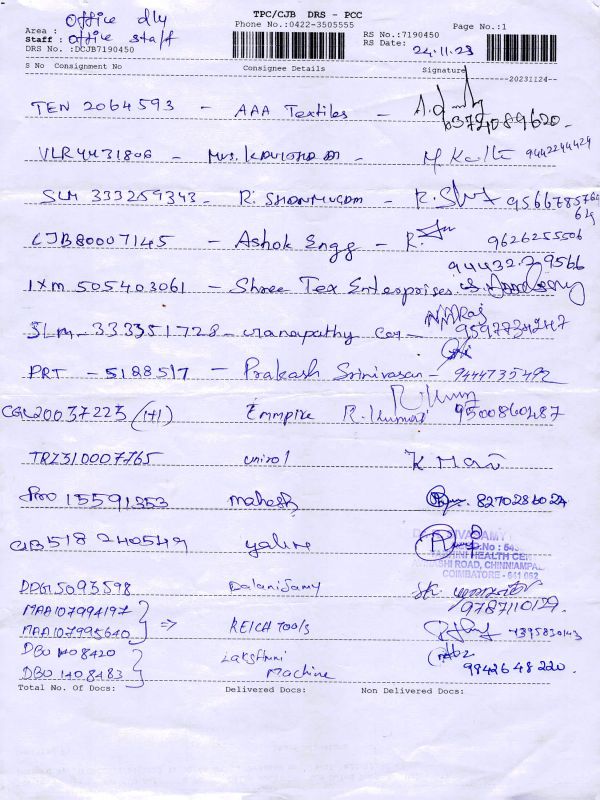 TPC/CJB DRS - PCC
Phone No.:0422-3505555
Page No.:1
Area : Office dly
Staff : Office staff
DRS No. :DCJB7190450
RS No.:7190450
RS Date: 24.11.23
S No Consignment No Consignee Details Signature
--20231124--
TEN 2064593 - AAA Textiles -
6374089620
VLR4431806 - Mrs. 9442244424
SLM 333259343 - R. SHANMUGAM -
CJB80007145 - Ashok Engg - R. 9626255506
IXM 505403061 - Shree Tex Enterprises
SLM - 333351728 - Car - 9597734247
PRT - 5188517 - Prakash Srinivasan - 9444735492
CGL20037223 (1+1) Emmpire R. Kumar 9500860487
TRZ310007765 K Mari
15591353 Mahesh 8270286024
CJB518240549
No : 54
HEALTH CEN
ROAD, CHINNIAMPAL
COIMBATORE - 641 062
DDG5093598 Palanisamy
9787110129.
MAA107994197
MAA107995640 => REICH TOOLS
DBO 1408420 Lakshmi
DBO 1408483 Machine 9942648220.
Total No. Of Docs: Delivered Docs: Non Delivered Docs: